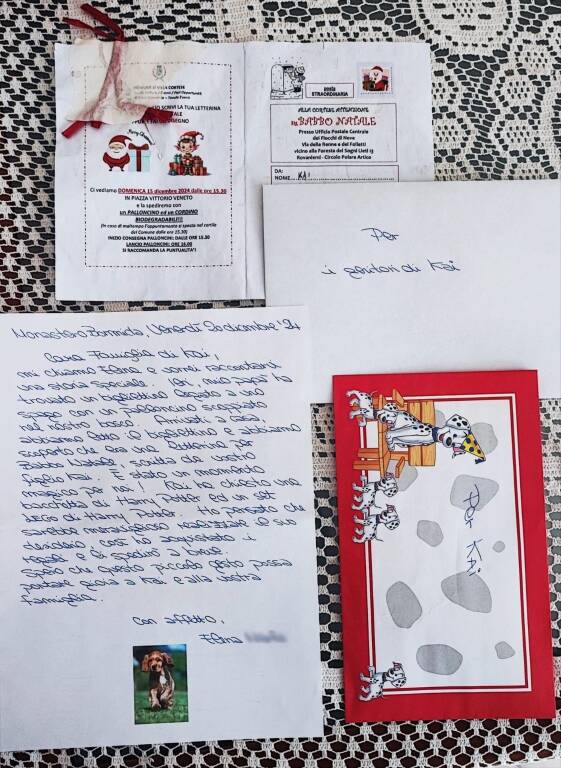 CORTESE
SCRIVI LA TUA LETTERINA
NATALE
DISEGNO
Merry Christmas
Ci vediamo DOMENICA 15 dicembre 2024 dalle ore 15.30
IN PIAZZA VITTORIO VENETO
e la spediremo con
un PALLONCINO ed un CORDINO
BIODEGRADABILI!!
(in caso di maltempo l'appuntamento si sposta nel cortile
del Comune dalle ore 15.30)
INIZIO CONSEGNA PALLONCINI: DALLE ORE 15.30
LANCIO PALLONCINI: ORE 16.00
SI RACCOMANDA LA PUNTUALITA'!
posta
STRAORDINARIA
ALLA CORTESE ATTENZIONE
DI BABBO NATALE
Presso Ufficio Postale Centrale
dei Fiocchi di Neve
Via delle Renne e dei Folletti
vicino alla Foresta dei Sogni Lieti 13
Rovaniemi - Circolo Polare Artico
DA:
NOME KAI
Per
i genitori di Kai
Monastero Bormida, Venerdì 20 dicembre '24
Cara Famiglia di Kai,
mi chiamo Elena e vorrei raccontarvi
una storia speciale. Ieri, mio papà ha
trovato un bigliettino legato a uno
spago con un palloncino scoppiato
nel nostro bosco. Arrivati a casa
abbiamo letto il bigliettino e abbiamo
scoperto che era una letterina per
Babbo Natale, scritta da vostro
figlio Kai. È stato un momento
magico per noi! Kai ha chiesto una
bacchetta di Harry Potter ed un set
LEGO di Harry Potter. Ho pensato che
sarebbe meraviglioso realizzare il suo
desiderio così ho acquistato i
regali e li spedirò a breve.
Spero che questo piccolo gesto possa
portare gioia a Kai e alla vostra
famiglia.
Con affetto,
Elena
Per Kai